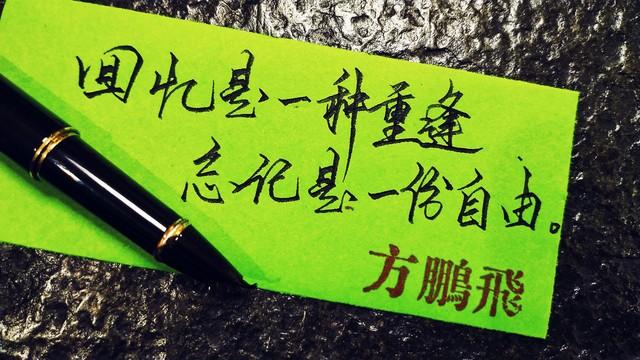 回忆是一种重逢
忘记是一份自由。
方鵬飛